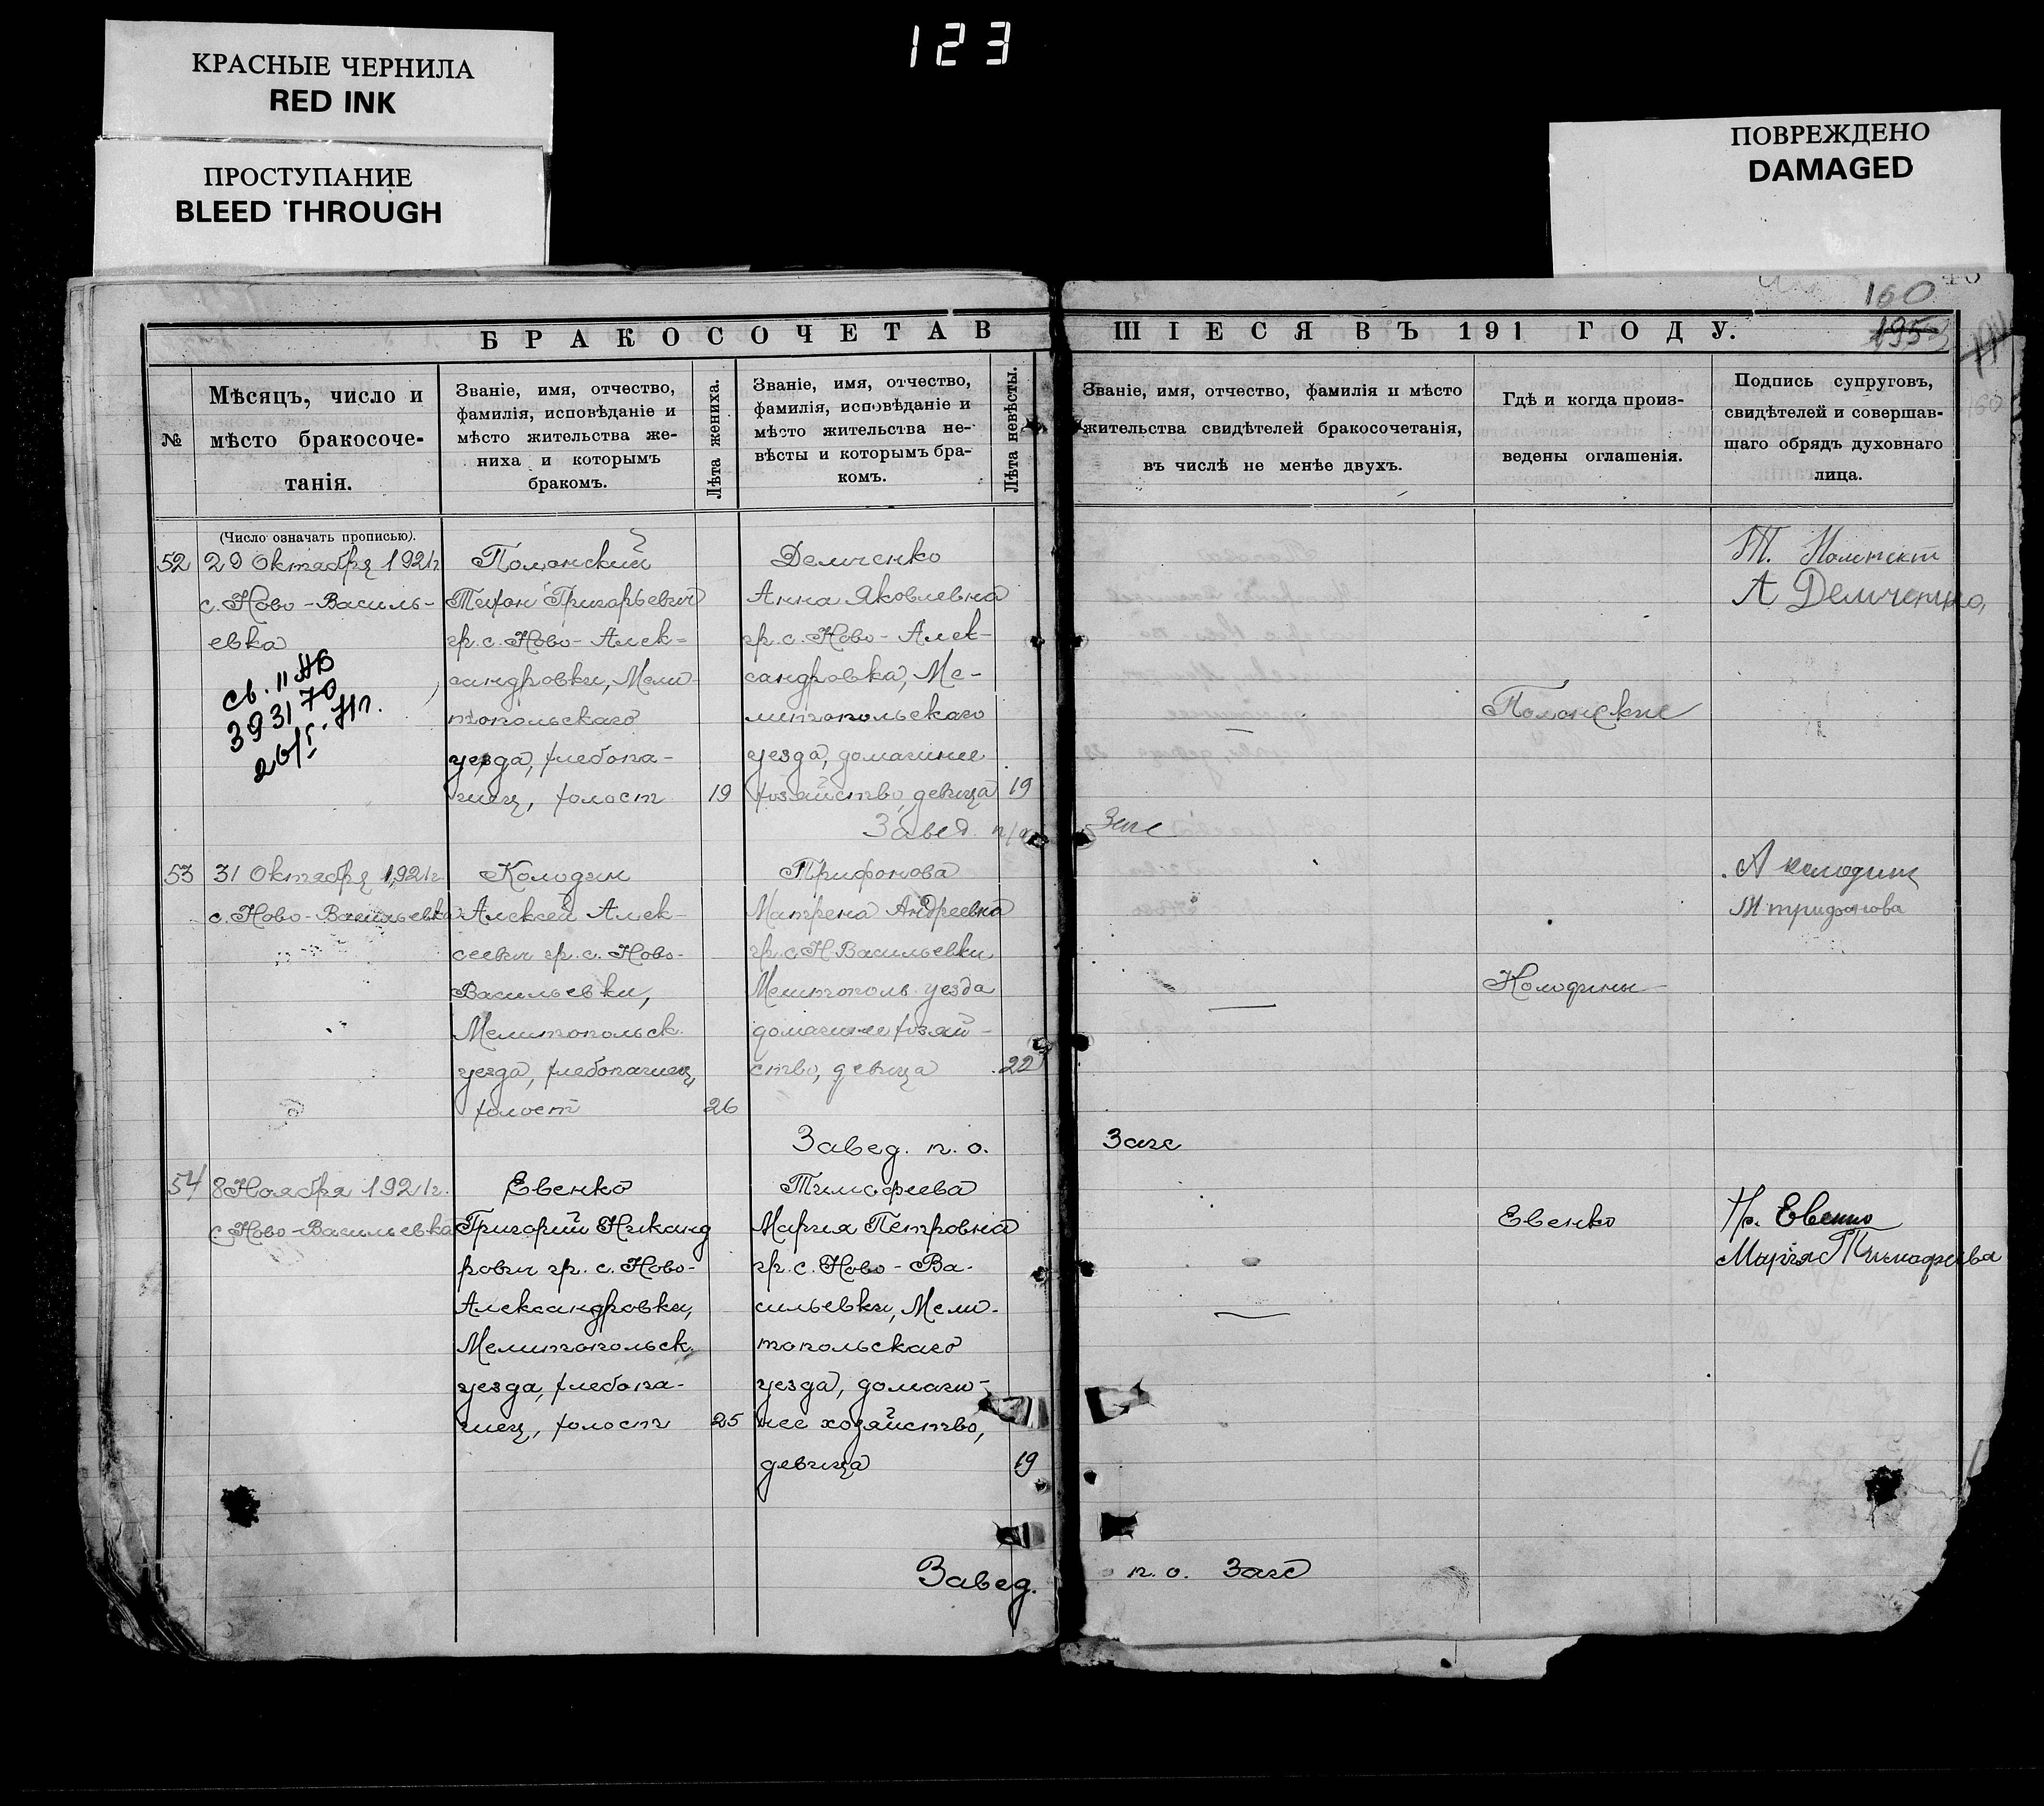 123
КРАСНЫЕ ЧЕРНИЛА
RED INK
ПРОСТУПАНИЕ
BLEED THROUGH
ПОВРЕЖДЕНО
DAMAGED
160
195
БРАКОСОЧЕТАВ
ШІЕСЯ ВЪ 191 ГОДУ.
№
Мѣсяцъ, число и
мѣсто бракосоче-
танія.
Званіе, имя, отчество,
фамилія, исповѣданіе и
мѣсто жительства же-
ниха и которымъ
бракомъ.
Лѣта жениха.
Званіе, имя, отчество,
фамилія, исповѣданіе и
мѣсто жительства не-
вѣсты и которымъ бра-
комъ.
Лѣта невѣсты.
Званіе, имя, отчество, фамилія и мѣсто
жительства свидѣтелей бракосочетанія,
въ числѣ не менѣе двухъ.
Гдѣ и когда произ-
ведены оглашенія.
Подпись супруговъ,
свидѣтелей и совершав-
шаго обрядъ духовнаго
лица.
(Число означать прописью).
52
29 Октября 1921г.
с. Ново-Василь-
евка
св. II АВ
393170
Полонский
Григорьевич
гр. с. Ново-Алек-
сандровки, Мели-
топольскаго
уезда, хлебопа-
шец, холост
19
Демченко
Анна Яковлевна
гр. с. Ново-Алек-
сандровка, Ме-
литопольскаго
уезда, домашнее
хозяйство, девица
19
Завед. п/о
Загс
Полонские
А Демченко
53
31 Октября 1921г.
с. Ново-Васильевка
Колодин
Алексей Алек-
сеевич гр. с. Ново-
Васильевки,
Мелитопольск.
уезда, хлебопашец,
холост
26
Трифонова
Матрена Андреевна
гр. с. Н Васильевки
Мелитополь. уезда
домашнее хозяй-
ство, девица
22
Завед. п. о.
Загс
Колодины
А колодин
М трифонова
54
8 Ноября 1921г.
с. Ново-Васильевка
Евенко
Григорий Никанд
рович гр. с. Ново-
Александровки,
Мелитопольск.
уезда, хлебопа-
шец, холост
25
Тимофеева
Мария Петровна
гр. с. Ново-Ва-
сильевки, Мели-
топольскаго
уезда, домаш-
нее хозяйство,
девица
19
Евенко
Гр. Евенко
Мария Тимофеева
Завед.
п. о. Загс